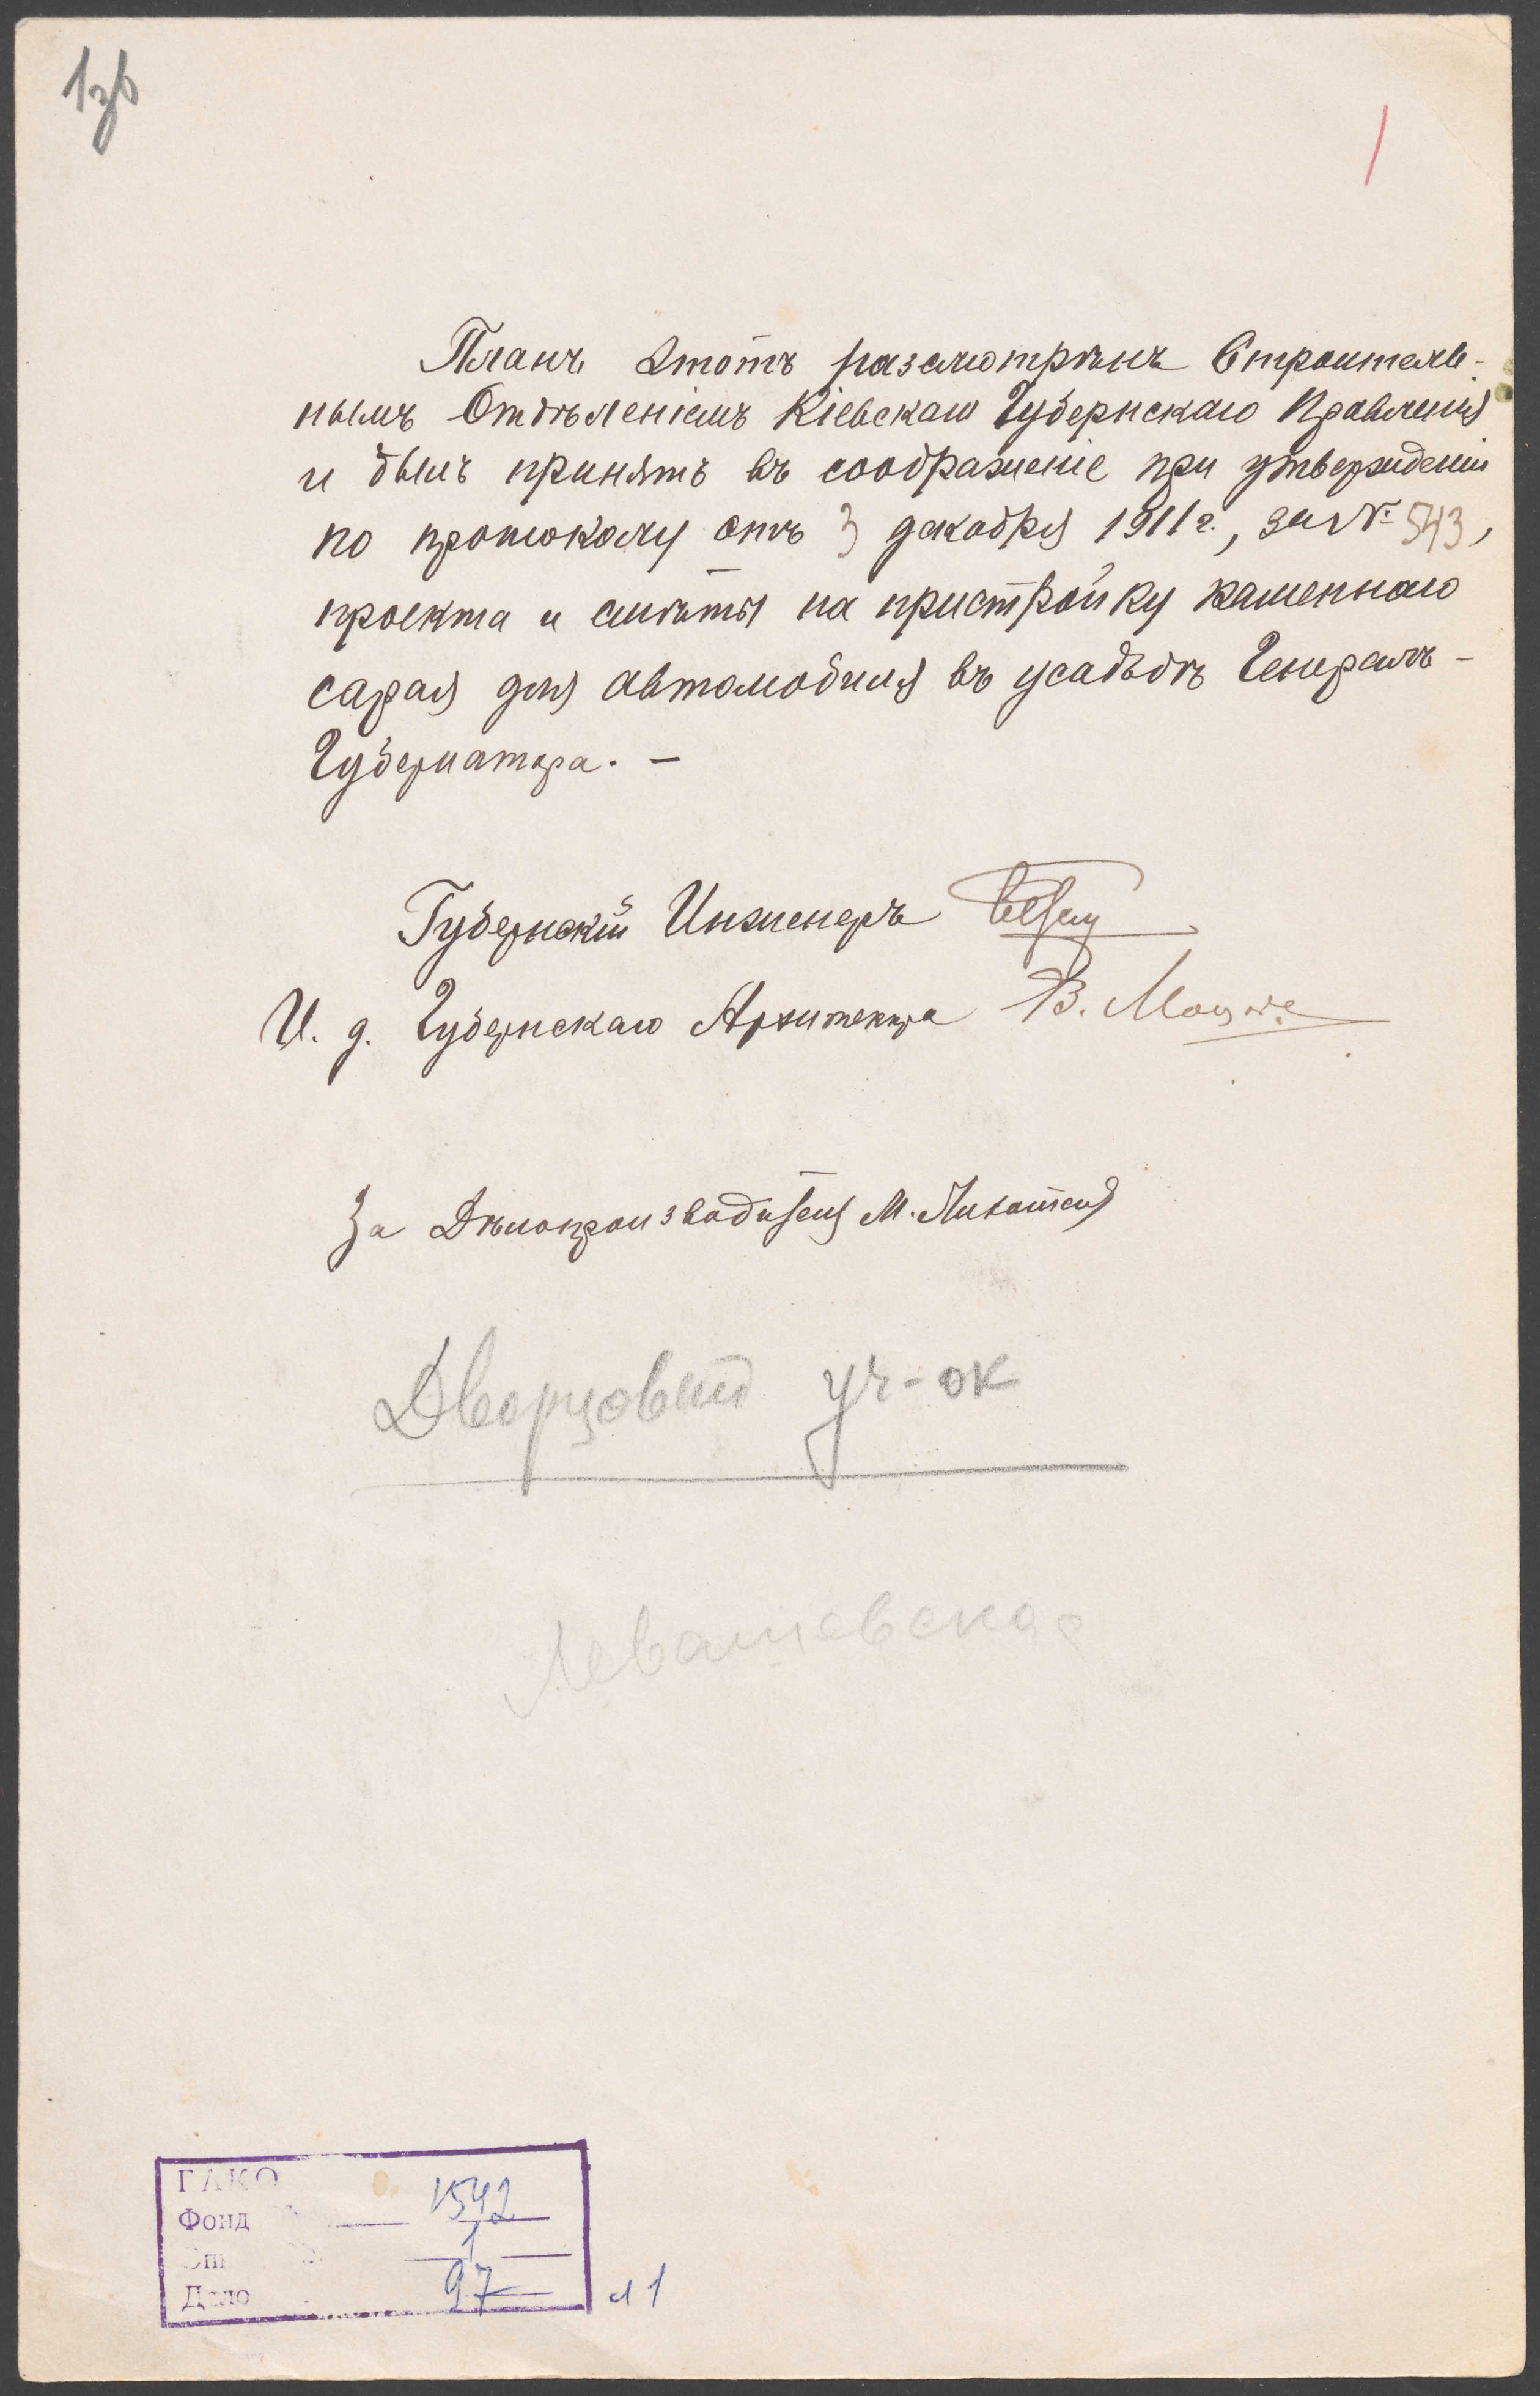 1зв
Планъ этотъ разсмотрѣнъ Строитель-
нымъ Отдѣленіемъ Кіевскаго Губернскаго Правленія
и былъ принятъ въ соображеніе при утвержденіи
по протоколу отъ 3 декабря 1911 г., за № 543,
проекта и смѣты на пристройку каменнаго
сарая для автомобиля въ усадьбѣ Генералъ-
Губернатора. —
Губернскій Инженеръ
И. д. Губернскаго Архитектора В.
За Дѣлопроизводителя М.
Дворцовый уч-ок
Левашевская
ГАКО
Фонд 1542
1
Дело 97
л 1